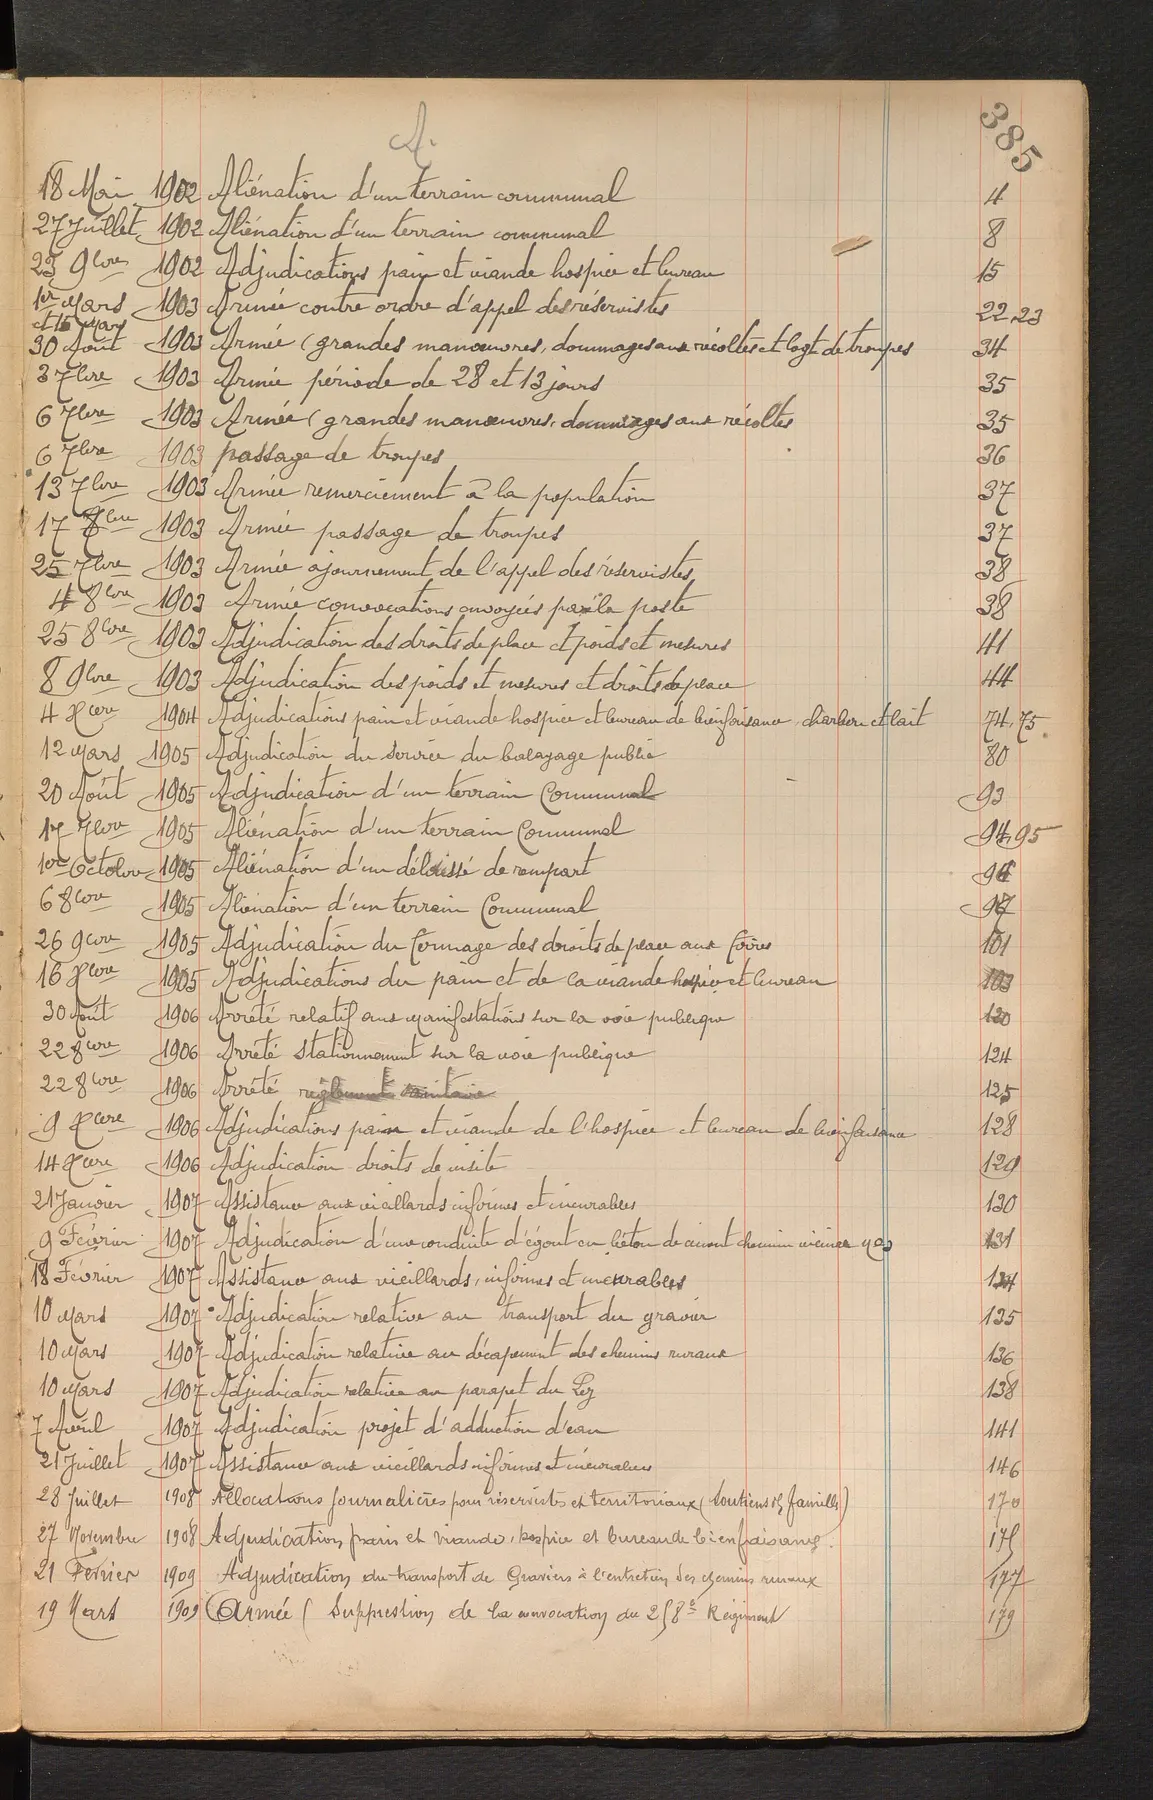 385
A.
18 Mai 1902 Aliénation d'un terrain communal 4
27 Juillet 1902 Aliénation d'un terrain communal 8
23 9bre 1902 Adjudications pain et viande hospice et bureau 15
1er Mars et 15 Mars 1903 Armée contre ordre d'appel des réservistes 22,23
30 Août 1903 Armée (grandes manœuvres, dommages aux récoltes et logt de troupes 34
3 7bre 1903 Armée période de 28 et 13 jours 35
6 7bre 1903 Armée (grandes manœuvres, dommages aux récoltes 35
6 7bre 1903 passage de troupes 36
13 7bre 1903 Armée remerciement à la population 37
17 7bre 1903 Armée passage de troupes 37
25 7bre 1903 Armée ajournement de l'appel des réservistes 38
4 8bre 1903 Armée convocations envoyées par la poste 38
25 8bre 1903 Adjudication des droits de place et poids et mesures 41
8 9bre 1903 Adjudication des poids et mesures et droits de place 44
4 Xbre 1904 Adjudications pain et viande hospice et bureau de bienfaisance, charbon et lait 74,75
12 Mars 1905 Adjudication du service du balayage public 80
20 Août 1905 Adjudication d'un terrain Communal 93
17 7bre 1905 Aliénation d'un terrain Communal 94,95
1er Octobre 1905 Aliénation d'un délaissé de rempart 96
6 8bre 1905 Aliénation d'un terrain Communal 97
26 9bre 1905 Adjudication du fermage des droits de place aux foires 101
16 Xbre 1905 Adjudications du pain et de la viande hospice et bureau 103
30 Août 1906 Arrêté relatif aux manifestations sur la voie publique 120
22 8bre 1906 Arrêté stationnement sur la voie publique 124
22 8bre 1906 Arrêté règlement sanitaire 125
9 Xbre 1906 Adjudications pain et viande de l'hospice et bureau de bienfaisance 128
14 Xbre 1906 Adjudication droits de visite 129
21 Janvier 1907 Assistance aux vieillards infirmes et incurables 130
9 Février 1907 Adjudication d'une conduite d'égout en béton de ciment chemin vicinal 131
18 Février 1907 Assistance aux vieillards, infirmes et incurables 134
10 Mars 1907 Adjudication relative au transport du gravier 135
10 Mars 1907 Adjudication relative au décapement des chemins ruraux 136
10 Mars 1907 Adjudication relative au parapet du Lez 138
7 Avril 1907 Adjudication projet d'adduction d'eau 141
21 Juillet 1907 Assistance aux vieillards infirmes et incurables 146
28 Juillet 1908 Allocations journalières pour réservistes et territoriaux (soutiens de famille) 170
27 Novembre 1908 Adjudication pain et viande, hospice et bureau de bienfaisance. 175
21 Février 1909 Adjudication du transport de Graviers à l'entretien des chemins ruraux 177
19 Mars 1909 Armée (Suppression de la convocation du 258e Régiment 179